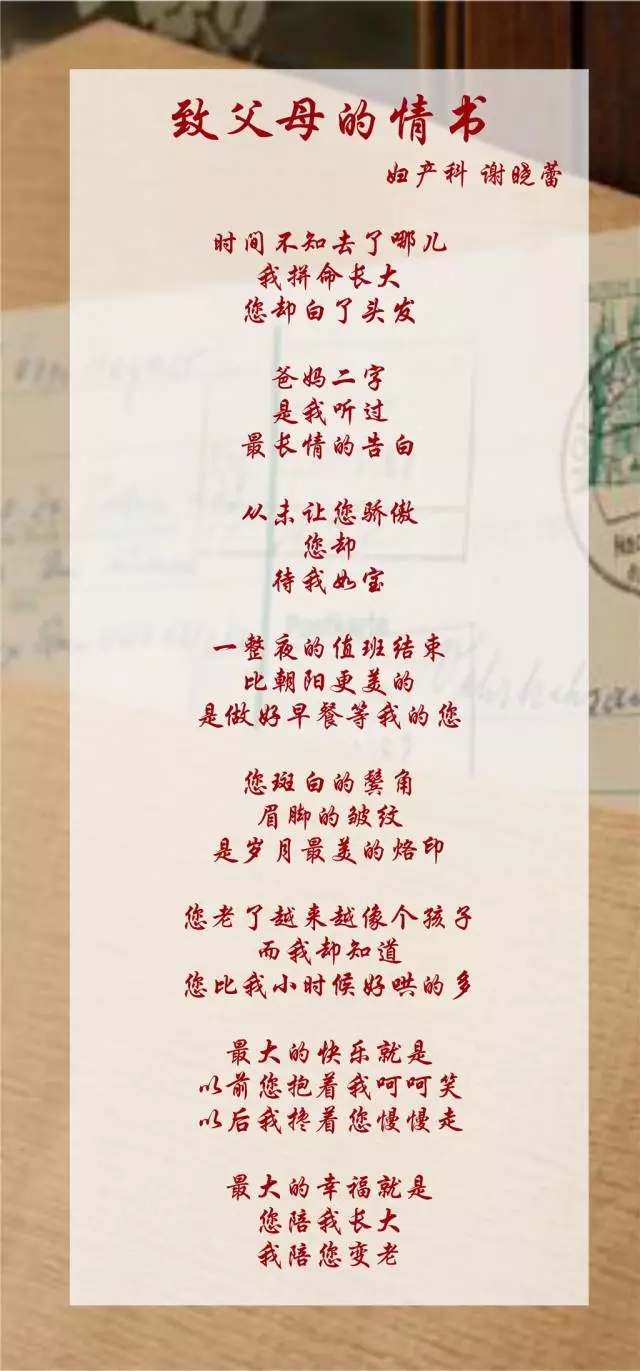 致父母的情书
妇产科 谢晓蕾
时间不知去了哪儿
我拼命长大
您却白了头发
爸妈二字
是我听过
最长情的告白
从未让您骄傲
您却
待我如宝
一整夜的值班结束
比朝阳更美的
是做好早餐等我的您
您斑白的鬓角
眉脚的皱纹
是岁月最美的烙印
您老了越来越像个孩子
而我却知道
您比我小时候好哄的多
最大的快乐就是
以前您抱着我呵呵笑
以后我搀着您慢慢走
最大的幸福就是
您陪我长大
我陪您变老